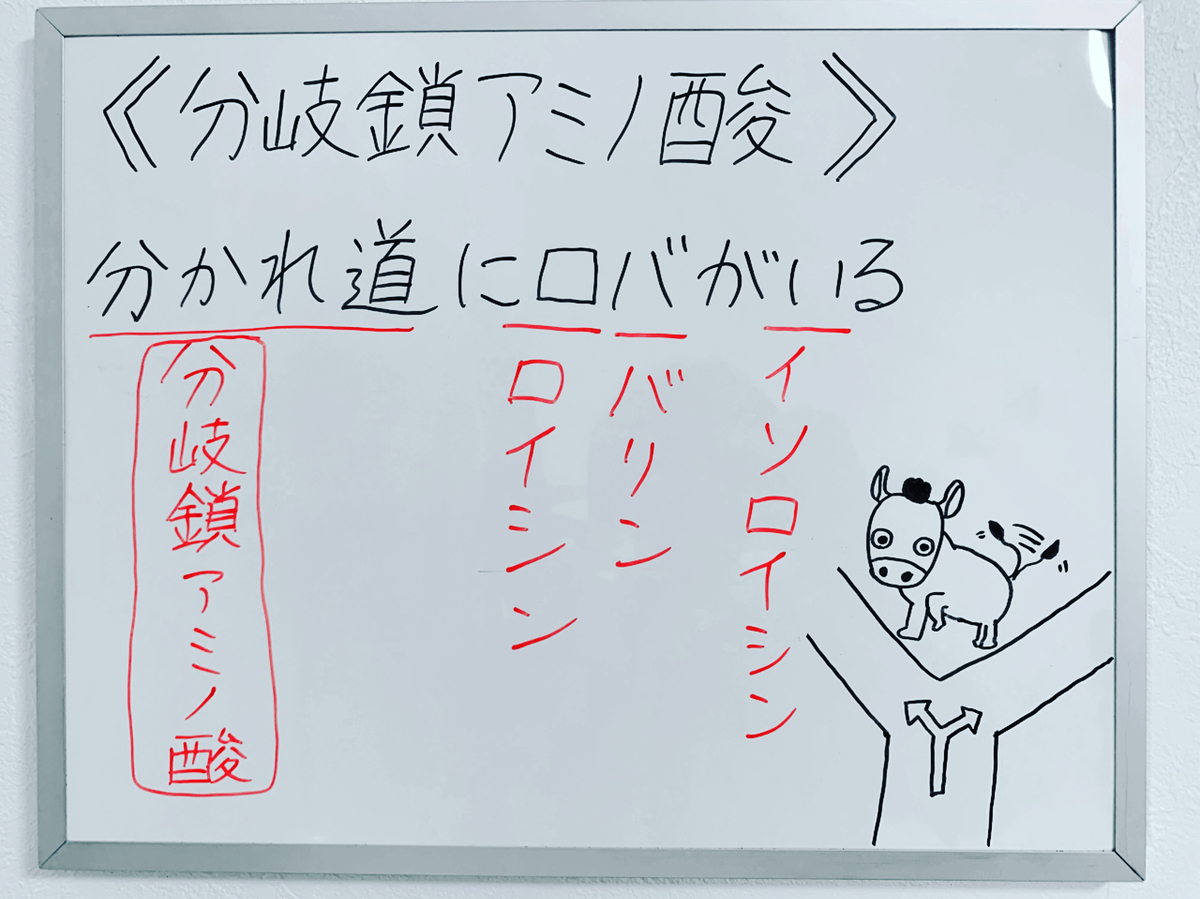 《分岐鎖アミノ酸》
分かれ道にロバがいる
分岐鎖アミノ酸
ロイシン
バリン
イソロイシン